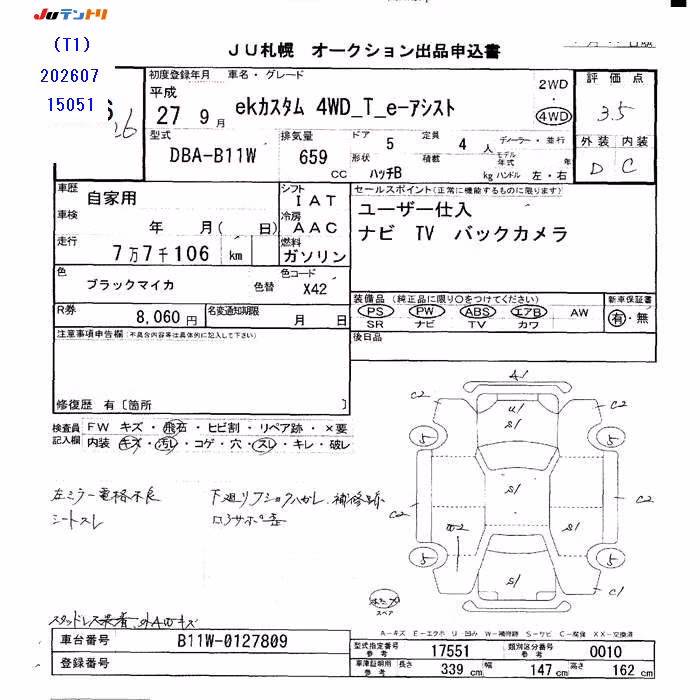 JUテントリ
(T1)
202607
15051
JU札幌 オークション出品申込書
26
初度登録年月 車名・グレード
平成
27 9 月 ekカスタム 4WD_T_e-アシスト
2WD
・
4WD
評価点
3.5
型式 排気量 ドア 定員 ディーラー・並行
DBA-B11W 659 CC 5 4 人
形状 積載 モデル年式 年
ハッチB kg ハンドル 左・右
外装 内装
D C
車歴 自家用
シフト IAT
セールスポイント(正常に機能するものに限ります)
車検 年 月( 日)
冷房 AAC
ユーザー仕入
走行 7万7千106 km
燃料 ガソリン
ナビ TV バックカメラ
色 ブラックマイカ 色替
色コード X42
装備品 (純正品に限り○をつけてください) 新車保証書
PS PW ABS エアB AW 有・無
SR ナビ TV カワ
R券 8,060円 名変通知期限 月 日
注意事項申告欄(不具合内容等は具体的に記入して下さい)
後日品
修復歴 有〔箇所 〕
検査員記入欄
FW キズ・飛石・ヒビ割・リペア跡・×要
内装 キズ・汚レ・コゲ・穴・スレ・キレ・破レ
左ミラー電格不良
シートスレ
A1
C2 U1 C2
5 5
S1
C2 C2
S1
5 5
S1
C1
スペア
スタッドレス装着
A-キズ E-エクボ U 凹み W-補修跡 S-サビ C-腐食 XX-交換済
車台番号 B11W-0127809
登録番号
型式指定番号 参考 17551 類別区分番号 参考 0010
車庫証明用 参考 長さ 339 cm 幅 147 cm 高さ 162 cm